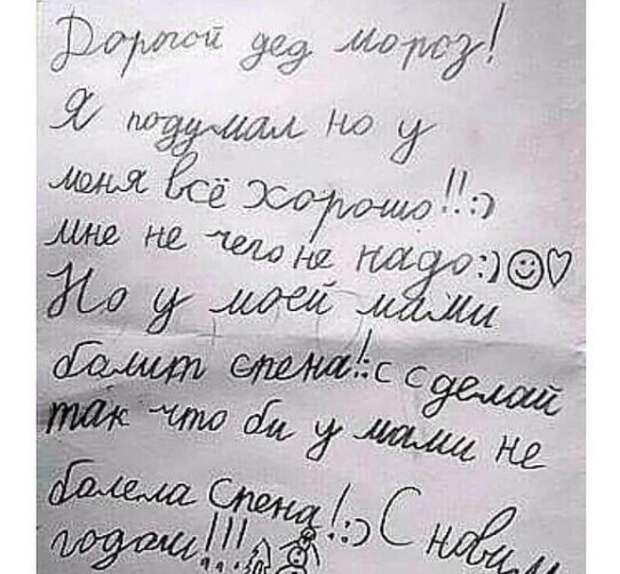 Дорогой дед мороз!
Я подумал но у
меня всё хорошо!!:)
мне не чего не надо:)☺♡
Но у моей мами
балит спена!:с сделай
так что би у мами не
балела спена!:) С новим
годам!!!